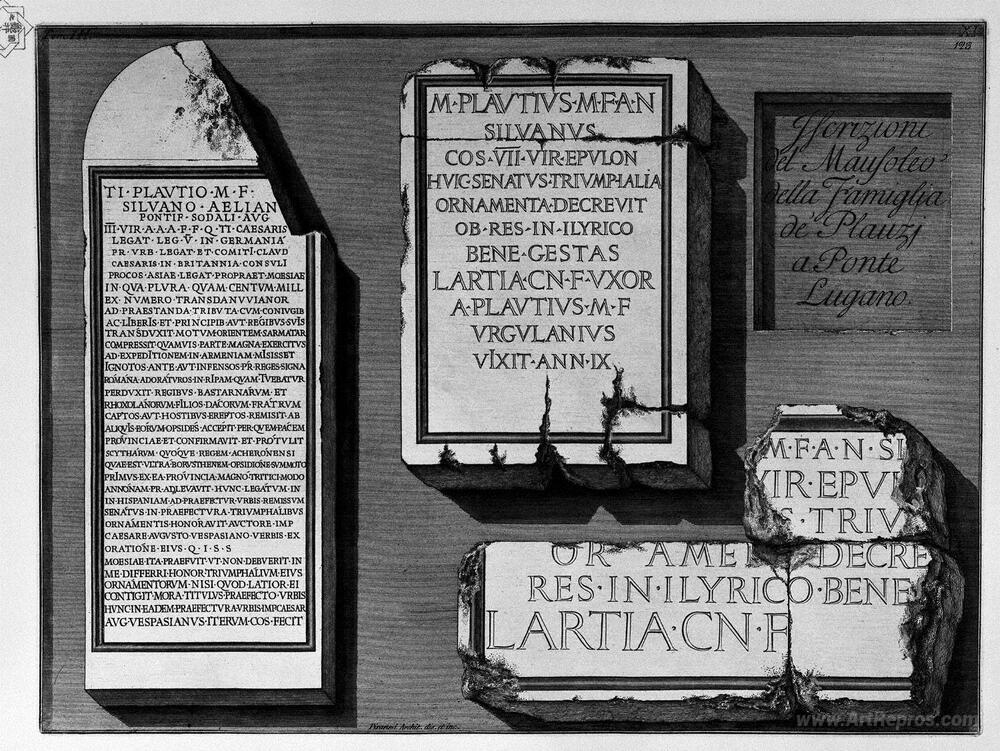 XI
128
TI·PLAVTIO·M·F·
SILVANO·AELIAN
PONTIF·SODALI·AVG
III·VIR·A·A·A·F·F·Q·TI·CAESARIS
LEGAT·LEG·V·IN·GERMANIA
PR·VRB·LEGAT·ET·COMITI·CLAVD
CAESARIS·IN·BRITANNIA·CONSVLI
PROCOS·ASIAE·LEGAT·PROPRAET·MOESIAE
IN·QVA·PLVRA·QVAM·CENTVM·MILL
EX·NVMERO·TRANSDANVVIANOR
AD·PRAESTANDA·TRIBVTA·CVM·CONIVGIB
AC·LIBERIS·ET·PRINCIPIB·AVT·REGIBVS·SVIS
TRANSDVXIT·MOTVM·ORIENTEM·SARMATAR
COMPRESSIT·QVAMVIS·PARTE·MAGNA·EXERCITVS
AD·EXPEDITIONEM·IN·ARMENIAM·MISISSET
IGNOTOS·ANTE·AVT·INFENSOS·P·R·REGES·SIGNA
ROMANA·ADORATVROS·IN·RIPAM·QVAM·TVEBATVR
PERDVXIT·REGIBVS·BASTARNARVM·ET
RHOXOLANORVM·FILIOS·DACORVM·FRATRVM
CAPTOS·AVT·HOSTIBVS·EREPTOS·REMISIT·AB
ALIQVIS·EORVM·OPSIDES·ACCEPIT·PER·QVEM·PACEM
PROVINCIAE·ET·CONFIRMAVIT·ET·PROTVLIT
SCYTHARVM·QVOQVE·REGEM·ACHERONENSI
QVAE·EST·VLTRA·BORVSTHENEM·OPSIDIONE·SVMMOTO
PRIMVS·EX·EA·PROVINCIA·MAGNO·TRITICI·MODO
ANNONAM·P·R·ADLEVAVIT·HVNC·LEGATVM·IN
IN·HISPANIAM·AD·PRAEFECTVR·VRBIS·REMISSVM
SENATVS·IN·PRAEFECTVRA·TRIVMPHALIBVS
ORNAMENTIS·HONORAVIT·AVCTORE·IMP
CAESARE·AVGVSTO·VESPASIANO·VERBIS·EX
ORATIONE·EIVS·Q·I·S·S
MOESIAE·ITA·PRAEFVIT·VT·NON·DEBVERIT·IN
ME·DIFFERRI·HONOR·TRIVMPHALIVM·EIVS
ORNAMENTORVM·NISI·QVOD·LATIOR·EI
CONTIGIT·MORA·TITVLVS·PRAEFECTO·VRBIS
HVNC·IN·EADEM·PRAEFECTVRA·VRBIS·IMP·CAESAR
AVG·VESPASIANVS·ITERVM·COS·FECIT
M·PLAVTIVS·M·F·A·N
SILVANVS
COS·VII·VIR·EPVLON
HVIC·SENATVS·TRIVMPHALIA
ORNAMENTA·DECREVIT
OB·RES·IN·ILYRICO
BENE·GESTAS
LARTIA·CN·F·VXOR
A·PLAVTIVS·M·F
VRGVLANIVS
VIXIT·ANN·IX
Iscrizioni
del Mausoleo
della Famiglia
de' Plauzj
a Ponte
Lugano
M·F·A·N·SI
VIR·EPVL
S·TRIV
OR AMEN DECRE
RES·IN·ILYRICO·BENE
LARTIA·CN·F
Piranesi Archit. dis. et inc.
www.ArtRepros.com